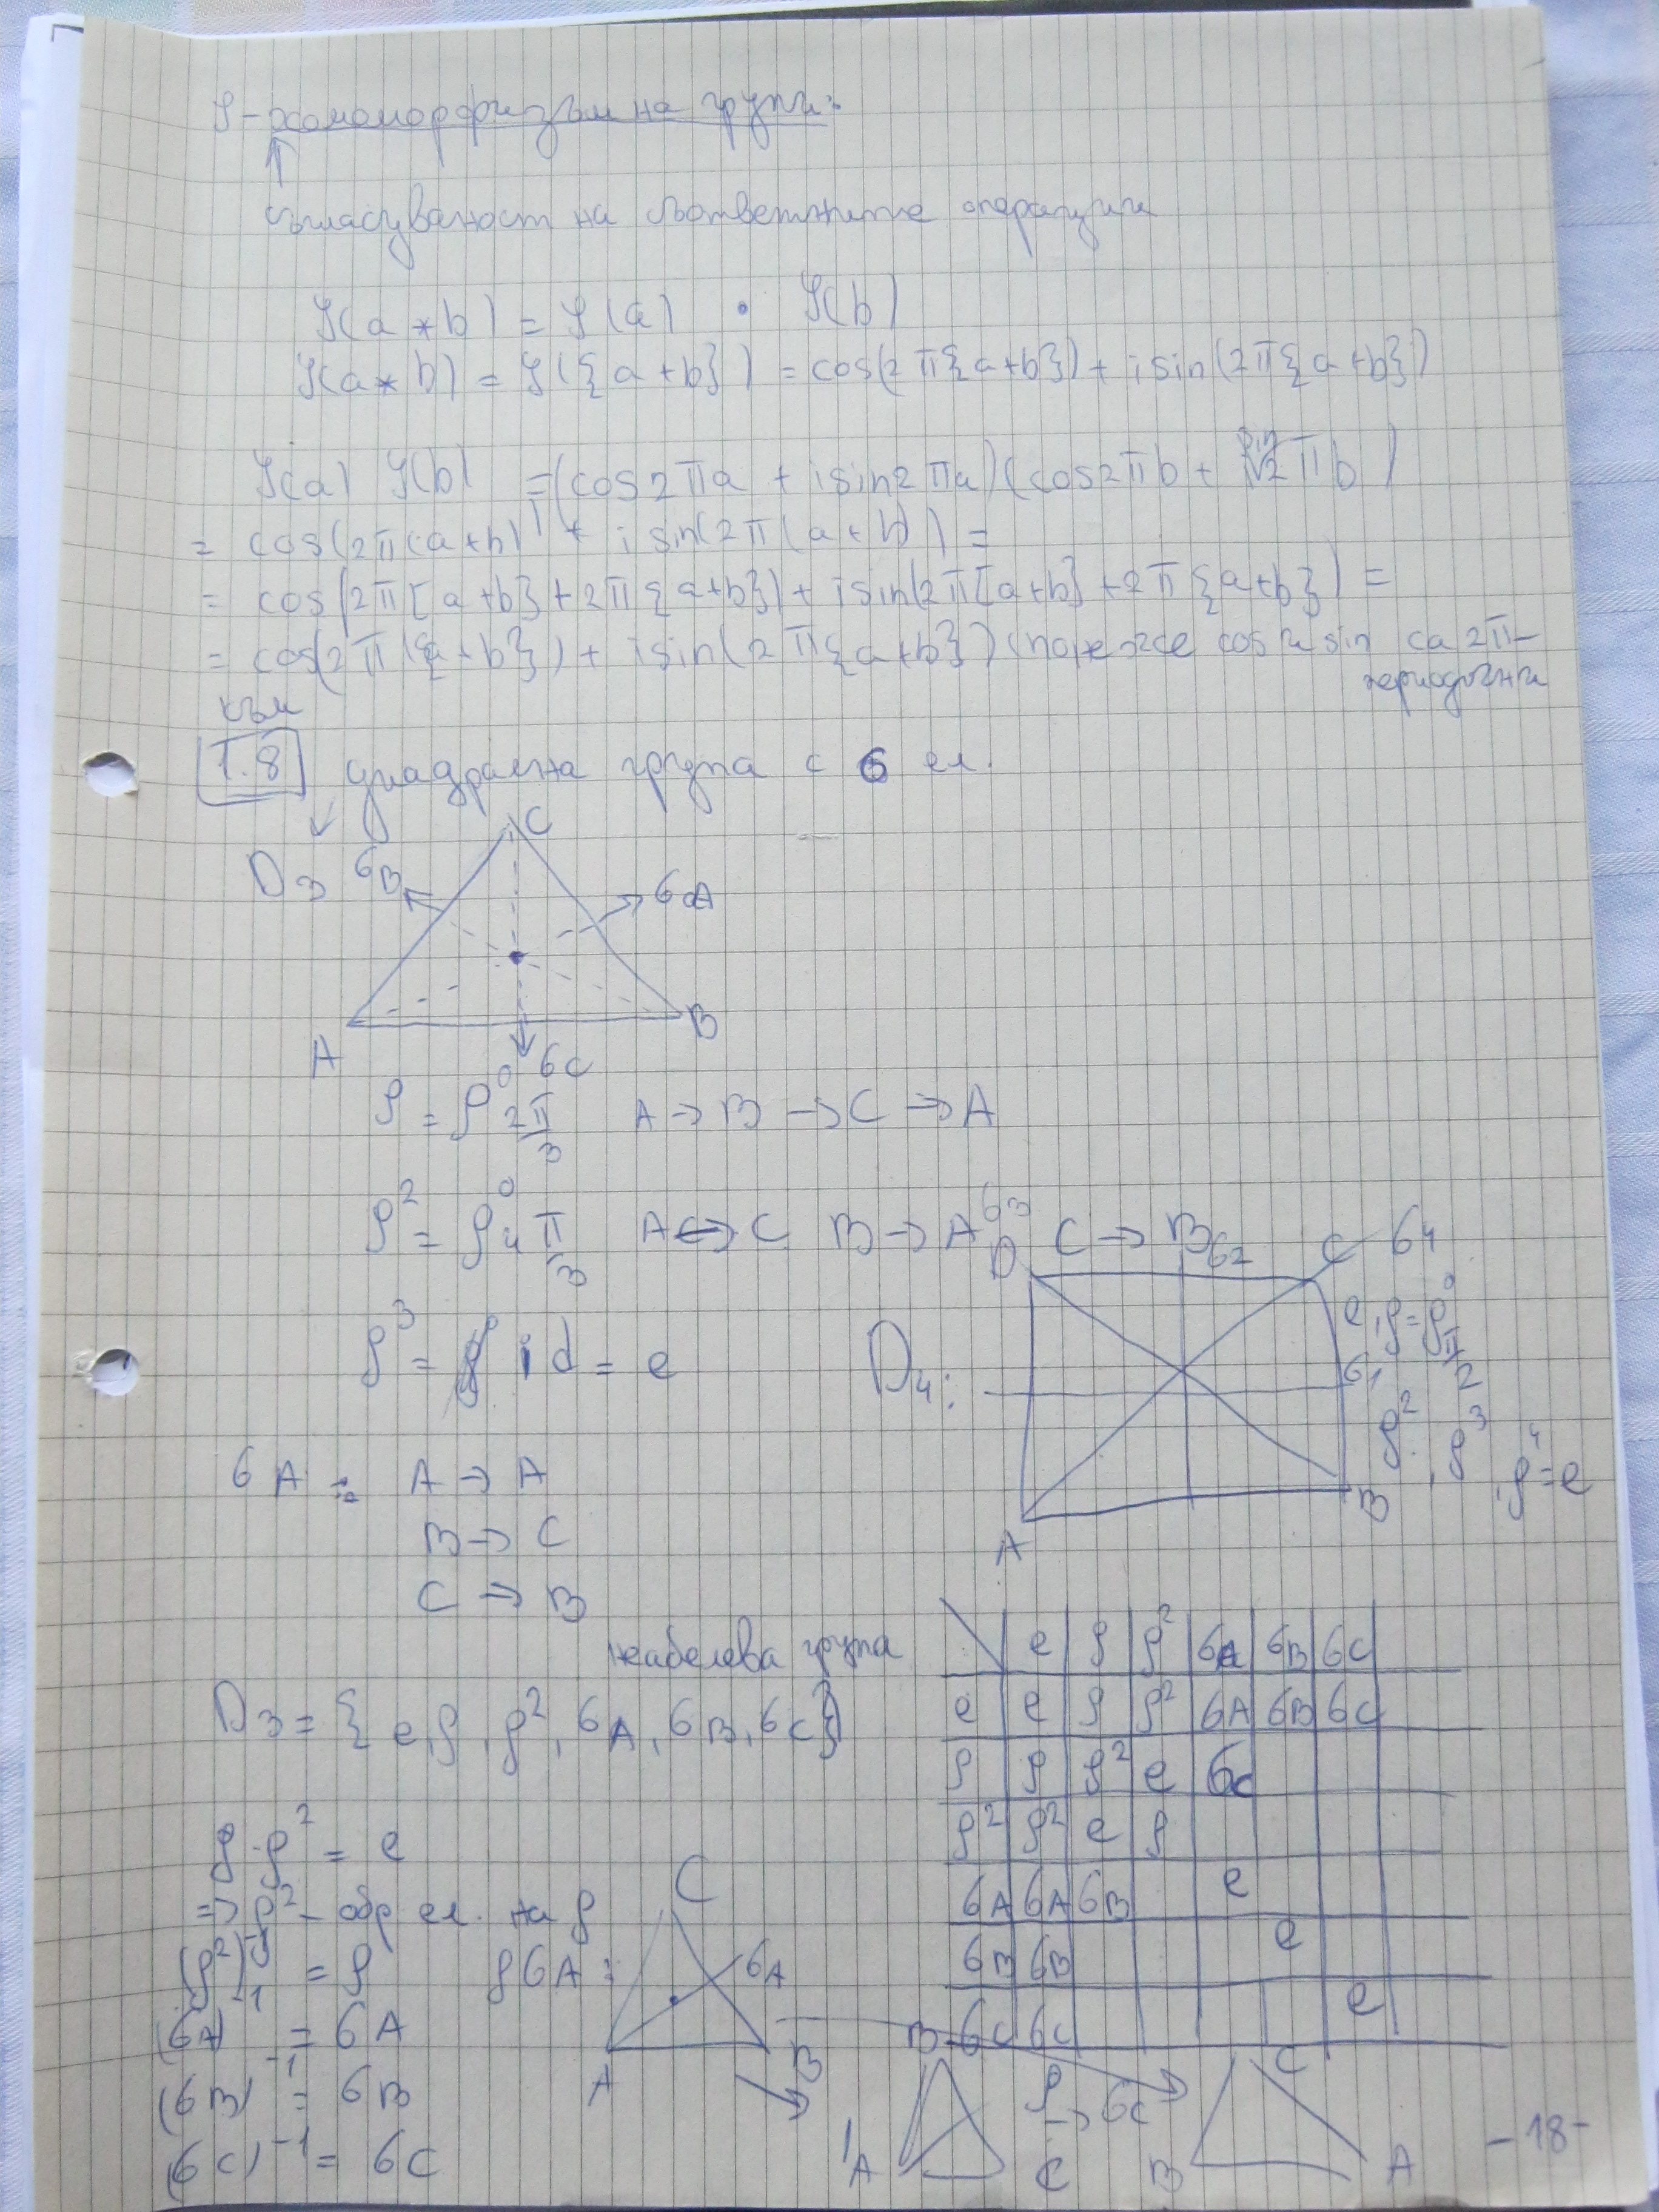 φ - хомоморфизъм на групи:
↑
съгласуваност на съответните операции
φ(a * b) = φ(a) • φ(b)
φ(a * b) = φ({a+b}) = cos(2π{a+b}) + i sin(2π{a+b})
φ(a) φ(b) = (cos2πa + i sin2πa)(cos2πb + i sin 2πb)
= cos(2π(a+b)) + i sin(2π(a+b)) =
= cos(2π[a+b] + 2π{a+b}) + i sin(2π[a+b] + 2π{a+b}) =
= cos(2π({a+b}) + i sin(2π{a+b}) (понеже cos и sin са 2π-
периодични
към
T.8 диадрална група с 6 ел.
D3 σB C σA
A B
σC
ρ = ρ⁰ 2π/3 A → B → C → A
ρ² = ρ⁰ 4π/3 A ↔ C B → A C → B
ρ³ = id = e
σ3 D σ2 C σ4
D4: σ1
A B
e, ρ = ρ⁰ π/2
ρ², ρ³, ρ⁴ = e
σA : A → A
B → C
C → B
неабелева група
D3 = { e, ρ, ρ², σA, σB, σC }
\ e ρ ρ² σA σB σC
e e ρ ρ² σA σB σC
ρ ρ ρ² e σC
ρ² ρ² e ρ
σA σA σB e
σB σB e
σC σC e
ρ·ρ² = e
=> ρ² - обр ел. на ρ
(ρ²)⁻¹ = ρ
(σA)⁻¹ = σA
(σB)⁻¹ = σB
(σC)⁻¹ = σC
ρσA :
C σA
A B
B
A C
ρ → σC
C
B A
-18-